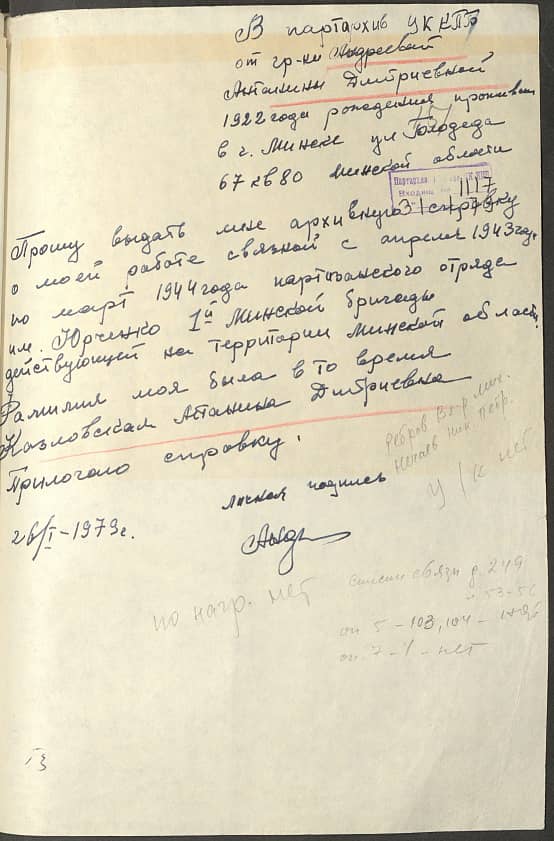 В партархив ЦК КПБ
от гр-ки Андреевой
Антанины Дмитриевной
1922 года рождения прожива
в г. Минске ул Голодеда
67 кв 80 Минской области
Партархив
Входящий
1117
31 79
Прошу выдать мне архивную справку
о моей работе связной с апреля 1943 года
по март 1944 года партизанского отряда
им. Юрченко 1й Минской бригады
действующей на территории Минской области.
Фамилия моя была в то время
Козловская Антанина Дмитриевна
Прилогаю справку.
личная подпись
26/I-1979г.
Ребров Вл-р мих.
Нечаев Ник. Петр.
У/К нет
по нагр. нет
списки связи д. 249
л. 53-56
оп 5 - 103, 104 -
оп. 7-1 - нет
13